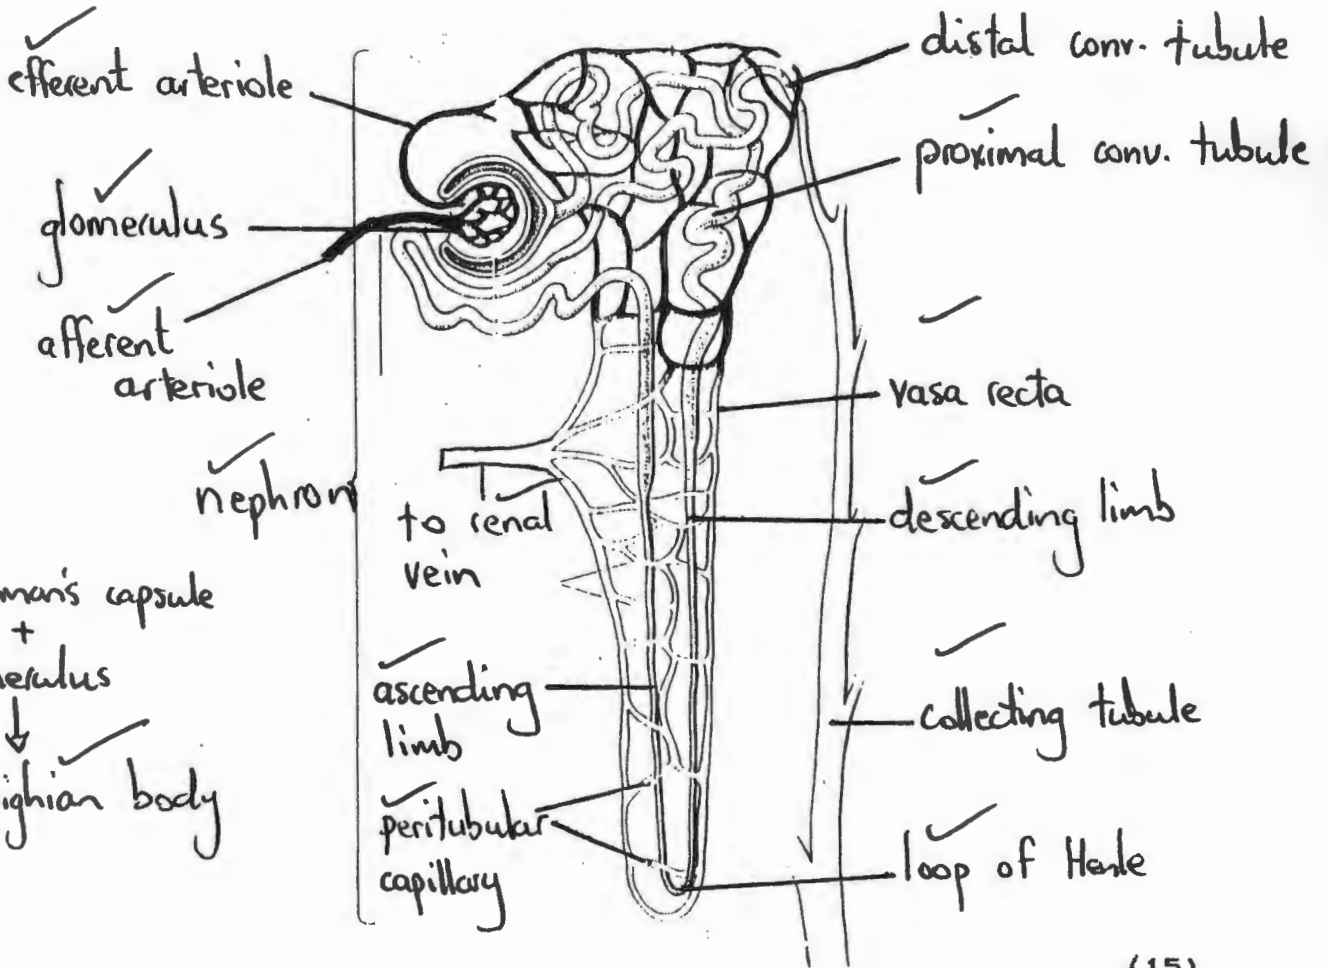 efferent arteriole
glomerulus
afferent
arteriole
nephron
man's capsule
+
erulus
ighian body
to renal
vein
ascending
limb
peritubular
capillary
distal conv. tubule
proximal conv. tubule
vasa recta
descending limb
collecting tubule
loop of Henle
(15)